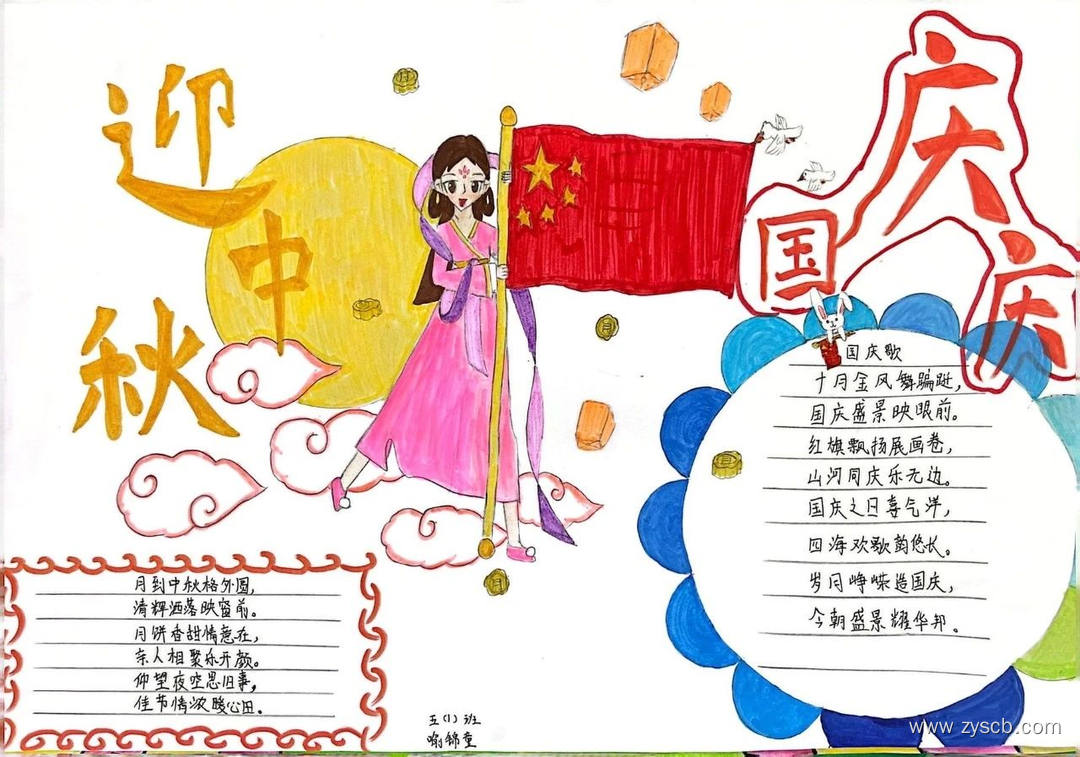 迎中秋
庆国庆
国庆歌
十月金风舞蹁跹,
国庆盛景映眼前。
红旗飘扬展画卷,
山河同庆乐无边。
国庆之日喜气洋,
四海欢歌韵悠长。
岁月峥嵘造国庆,
今朝盛景耀华邦。
月到中秋格外圆,
清辉洒落映窗前。
月饼香甜情意在,
亲人相聚乐开颜。
仰望夜空思旧事,
佳节情浓暖心田。
五(1)班
喻锦童
www.zyscb.com